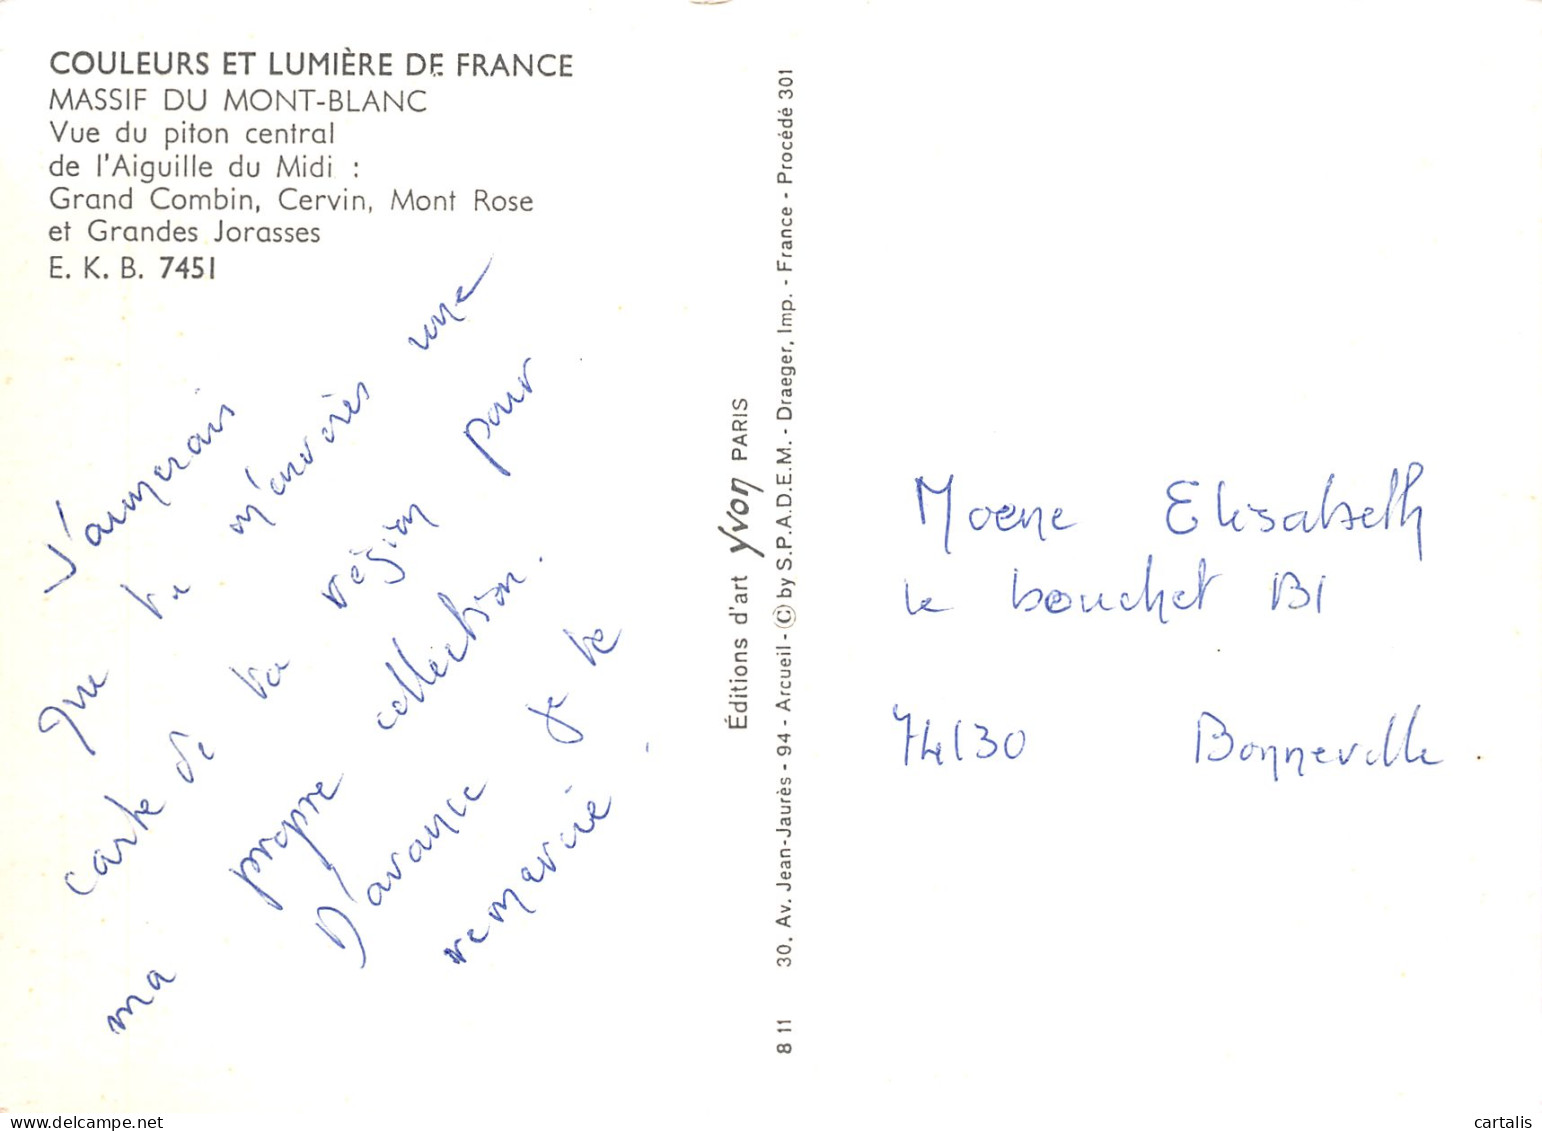 COULEURS ET LUMIÈRE DE FRANCE
MASSIF DU MONT-BLANC
Vue du piton central
de l'Aiguille du Midi :
Grand Combin, Cervin, Mont Rose
et Grandes Jorasses
E. K. B. 7451
J'aimerais
que tu m'envoies une
carte de ta région pour
ma propre collection.
D'avance je te
remercie.
Éditions d'art Yvon PARIS
8 11 30, Av. Jean-Jaurès - 94 - Arcueil - © by S.P.A.D.E.M. - Draeger, Imp. - France - Procédé 301
Moene Elisabeth
le bouchet B1
74130 Bonneville
cartalis